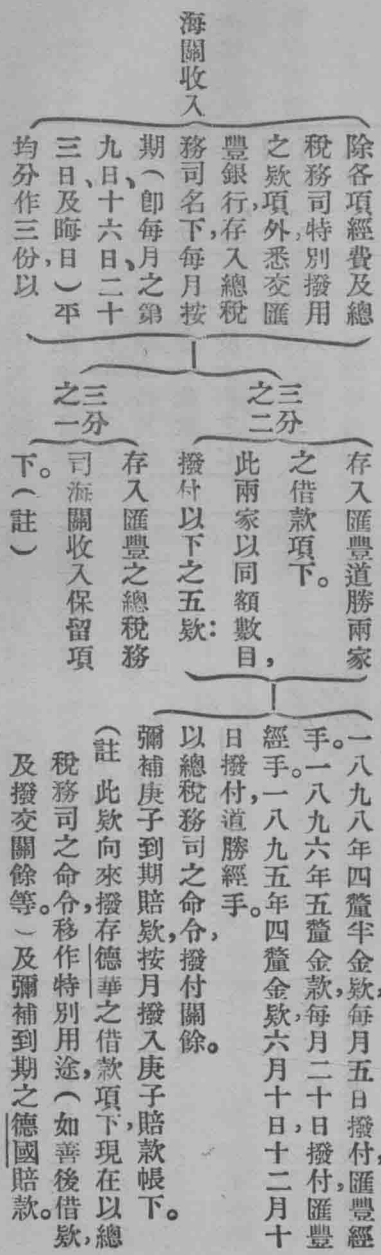 海關收入
除各項經費及總
稅務司特別撥用
之欵項外,悉交匯
豐銀行,存入總稅
務司名下,每月按
期(卽每月之第
九日、十六日、二十
三日及晦日)平
均分作三份,以
三分
之二
存入匯豐道勝兩家
之借款項下。
此兩家以同額數目,
撥付以下之五欵:
一八九八年四釐半金欵,每月五日撥付,匯豐經
手。一八九六年五釐金款,每月二十日撥付,匯豐
經手。一八九五年四釐金欵,六月十日,十二月十
日撥付,道勝經手。
以總稅務司之命令,撥付關餘。
彌補庚子到期賠欵,按月撥入庚子賠款帳下。
三分
之一
存入匯豐之總稅務
司海關收入保留項
下。(註)
(註 此欵向來撥存德華之借款項下,現在以總
稅務司之命令,移作特別用途,(如善後借欵,
及撥交關餘等。)及彌補到期之德國賠款。